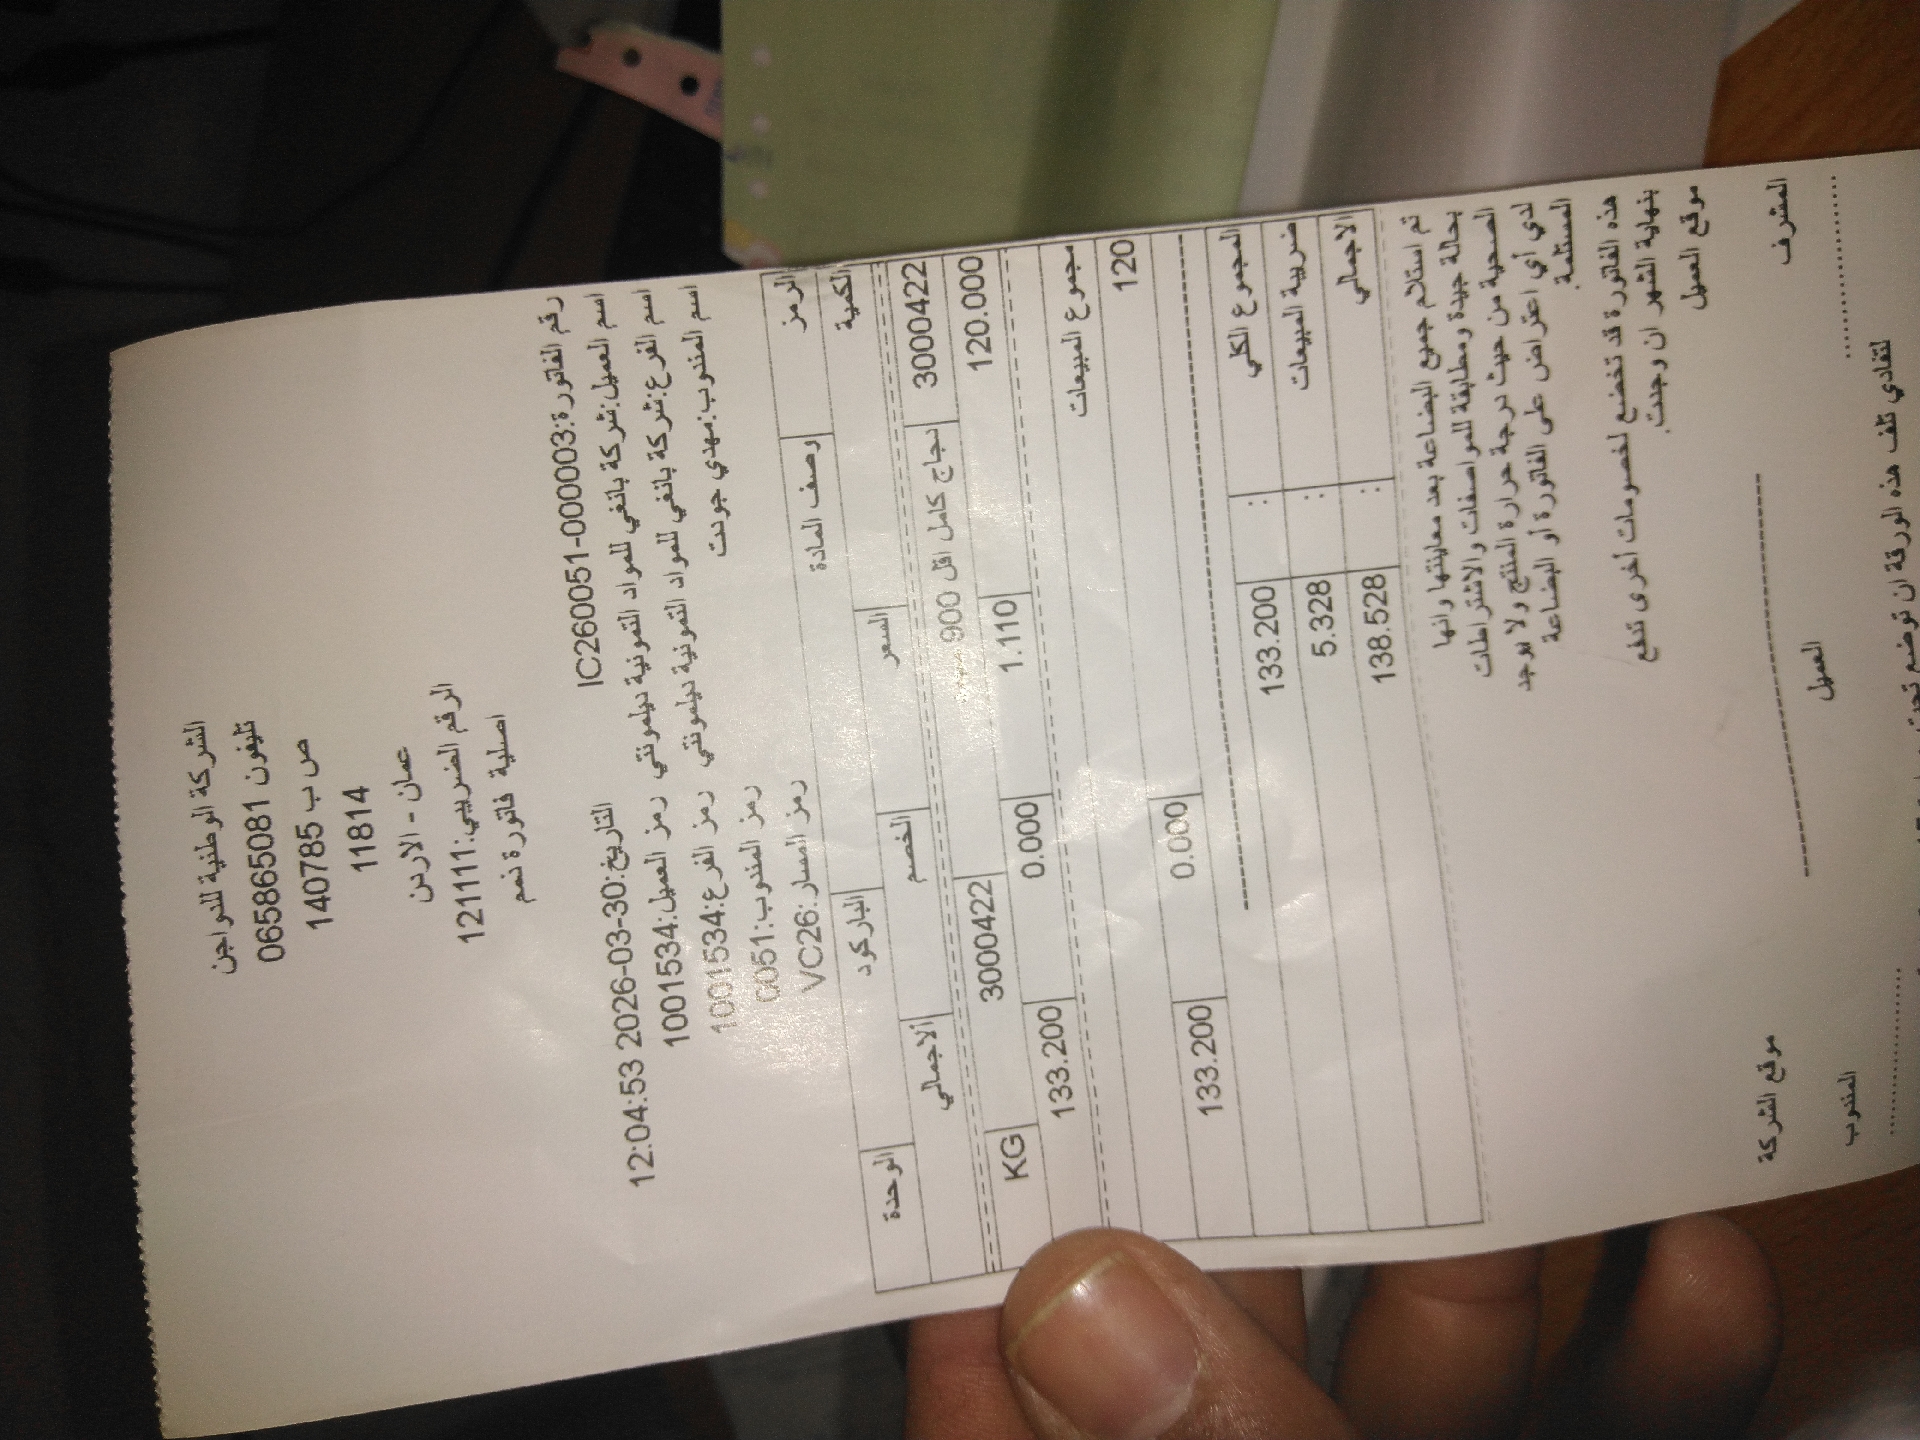 الشركة الوطنية للدواجن
تليفون 065865081
ص ب 140785
11814
عمان - الاردن
الرقم الضريبي:121111
اصلية فاتورة ذمم
رقم الفاتورة:IC260051-000003 التاريخ:30-03-2026 12:04:53
اسم العميل:شركة بانغي للمواد التموينية ديلمونتي رمز العميل:1001534
اسم الفرع:شركة بانغي للمواد التموينية ديلمونتي رمز الفرع:1001534
اسم المندوب:مهدي جودت رمز المندوب:C051
رمز المسار:VC26
الرمز وصف المادة الباركود الوحدة
الكمية السعر الخصم الاجمالي
30004422 دجاج كامل اقل 900 30004422 KG
120.000 1.110 0.000 133.200
مجموع المبيعات
120 0.000 133.200
المجموع الكلي : 133.200
ضريبة المبيعات : 5.328
الاجمالي : 138.528
تم استلام جميع البضاعة بعد معاينتها وانها
بحالة جيدة ومطابقة للمواصفات والاشتراطات
الصحية من حيث درجة حرارة المنتج ولا يوجد
لدي أي اعتراض على الفاتورة أو البضاعة
المستلمة.
هذه الفاتورة قد تخضع لخصومات أخرى تدفع
بنهاية الشهر ان وجدت.
موقع العميل موقع الشركة
المشرف العميل المندوب
لتفادي تلف هذه الورقة ان توضع تحت